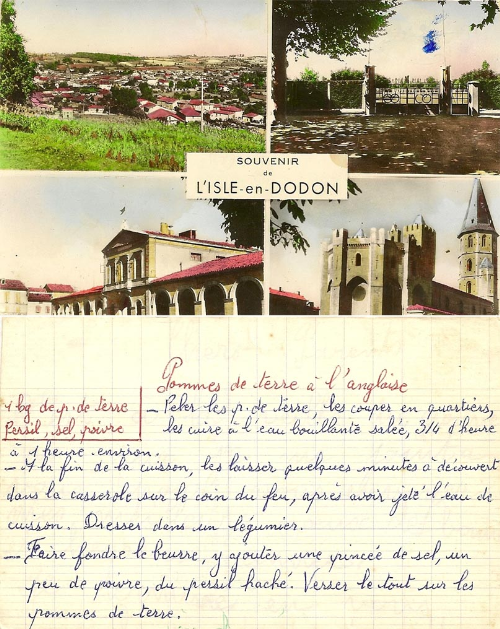 SOUVENIR
de
L'ISLE-en-DODON
Pommes de terre à l'anglaise
1 kg de p. de terre
Persil, sel, poivre
- Peler les p. de terre, les couper en quartiers,
les cuire à l'eau bouillante salée, 3/4 d'heure
à 1 heure environ.
- A la fin de la cuisson, les laisser quelques minutes à découvert
dans la casserole sur le coin du feu, après avoir jeté l'eau de
cuisson. Dresser dans un légumier.
- Faire fondre le beurre, y ajouter une pincée de sel, un
peu de poivre, du persil haché. Verser le tout sur les
pommes de terre.